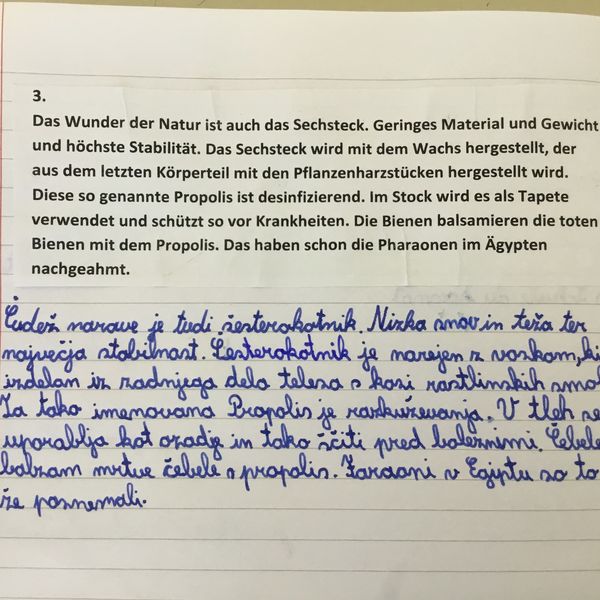 3.
Das Wunder der Natur ist auch das Sechsteck. Geringes Material und Gewicht
und höchste Stabilität. Das Sechsteck wird mit dem Wachs hergestellt, der
aus dem letzten Körperteil mit den Pflanzenharzstücken hergestellt wird.
Diese so genannte Propolis ist desinfizierend. Im Stock wird es als Tapete
verwendet und schützt so vor Krankheiten. Die Bienen balsamieren die toten
Bienen mit dem Propolis. Das haben schon die Pharaonen im Ägypten
nachgeahmt.
Čudež narave je tudi šesterokotnik. Nizka snov in teža ter
največja stabilnost. Šesterokotnik je narejen z voskom, ki
izdelan iz zadnjega dela telesa s kosi rastlinskih smol
Ta tako imenovana Propolis je razkuževanja. V tleh se
uporablja kot ozadje in tako ščiti pred boleznimi. Čebele
balzam mrtve čebele s propolis. Faraoni v Egiptu so to
že posnemali.